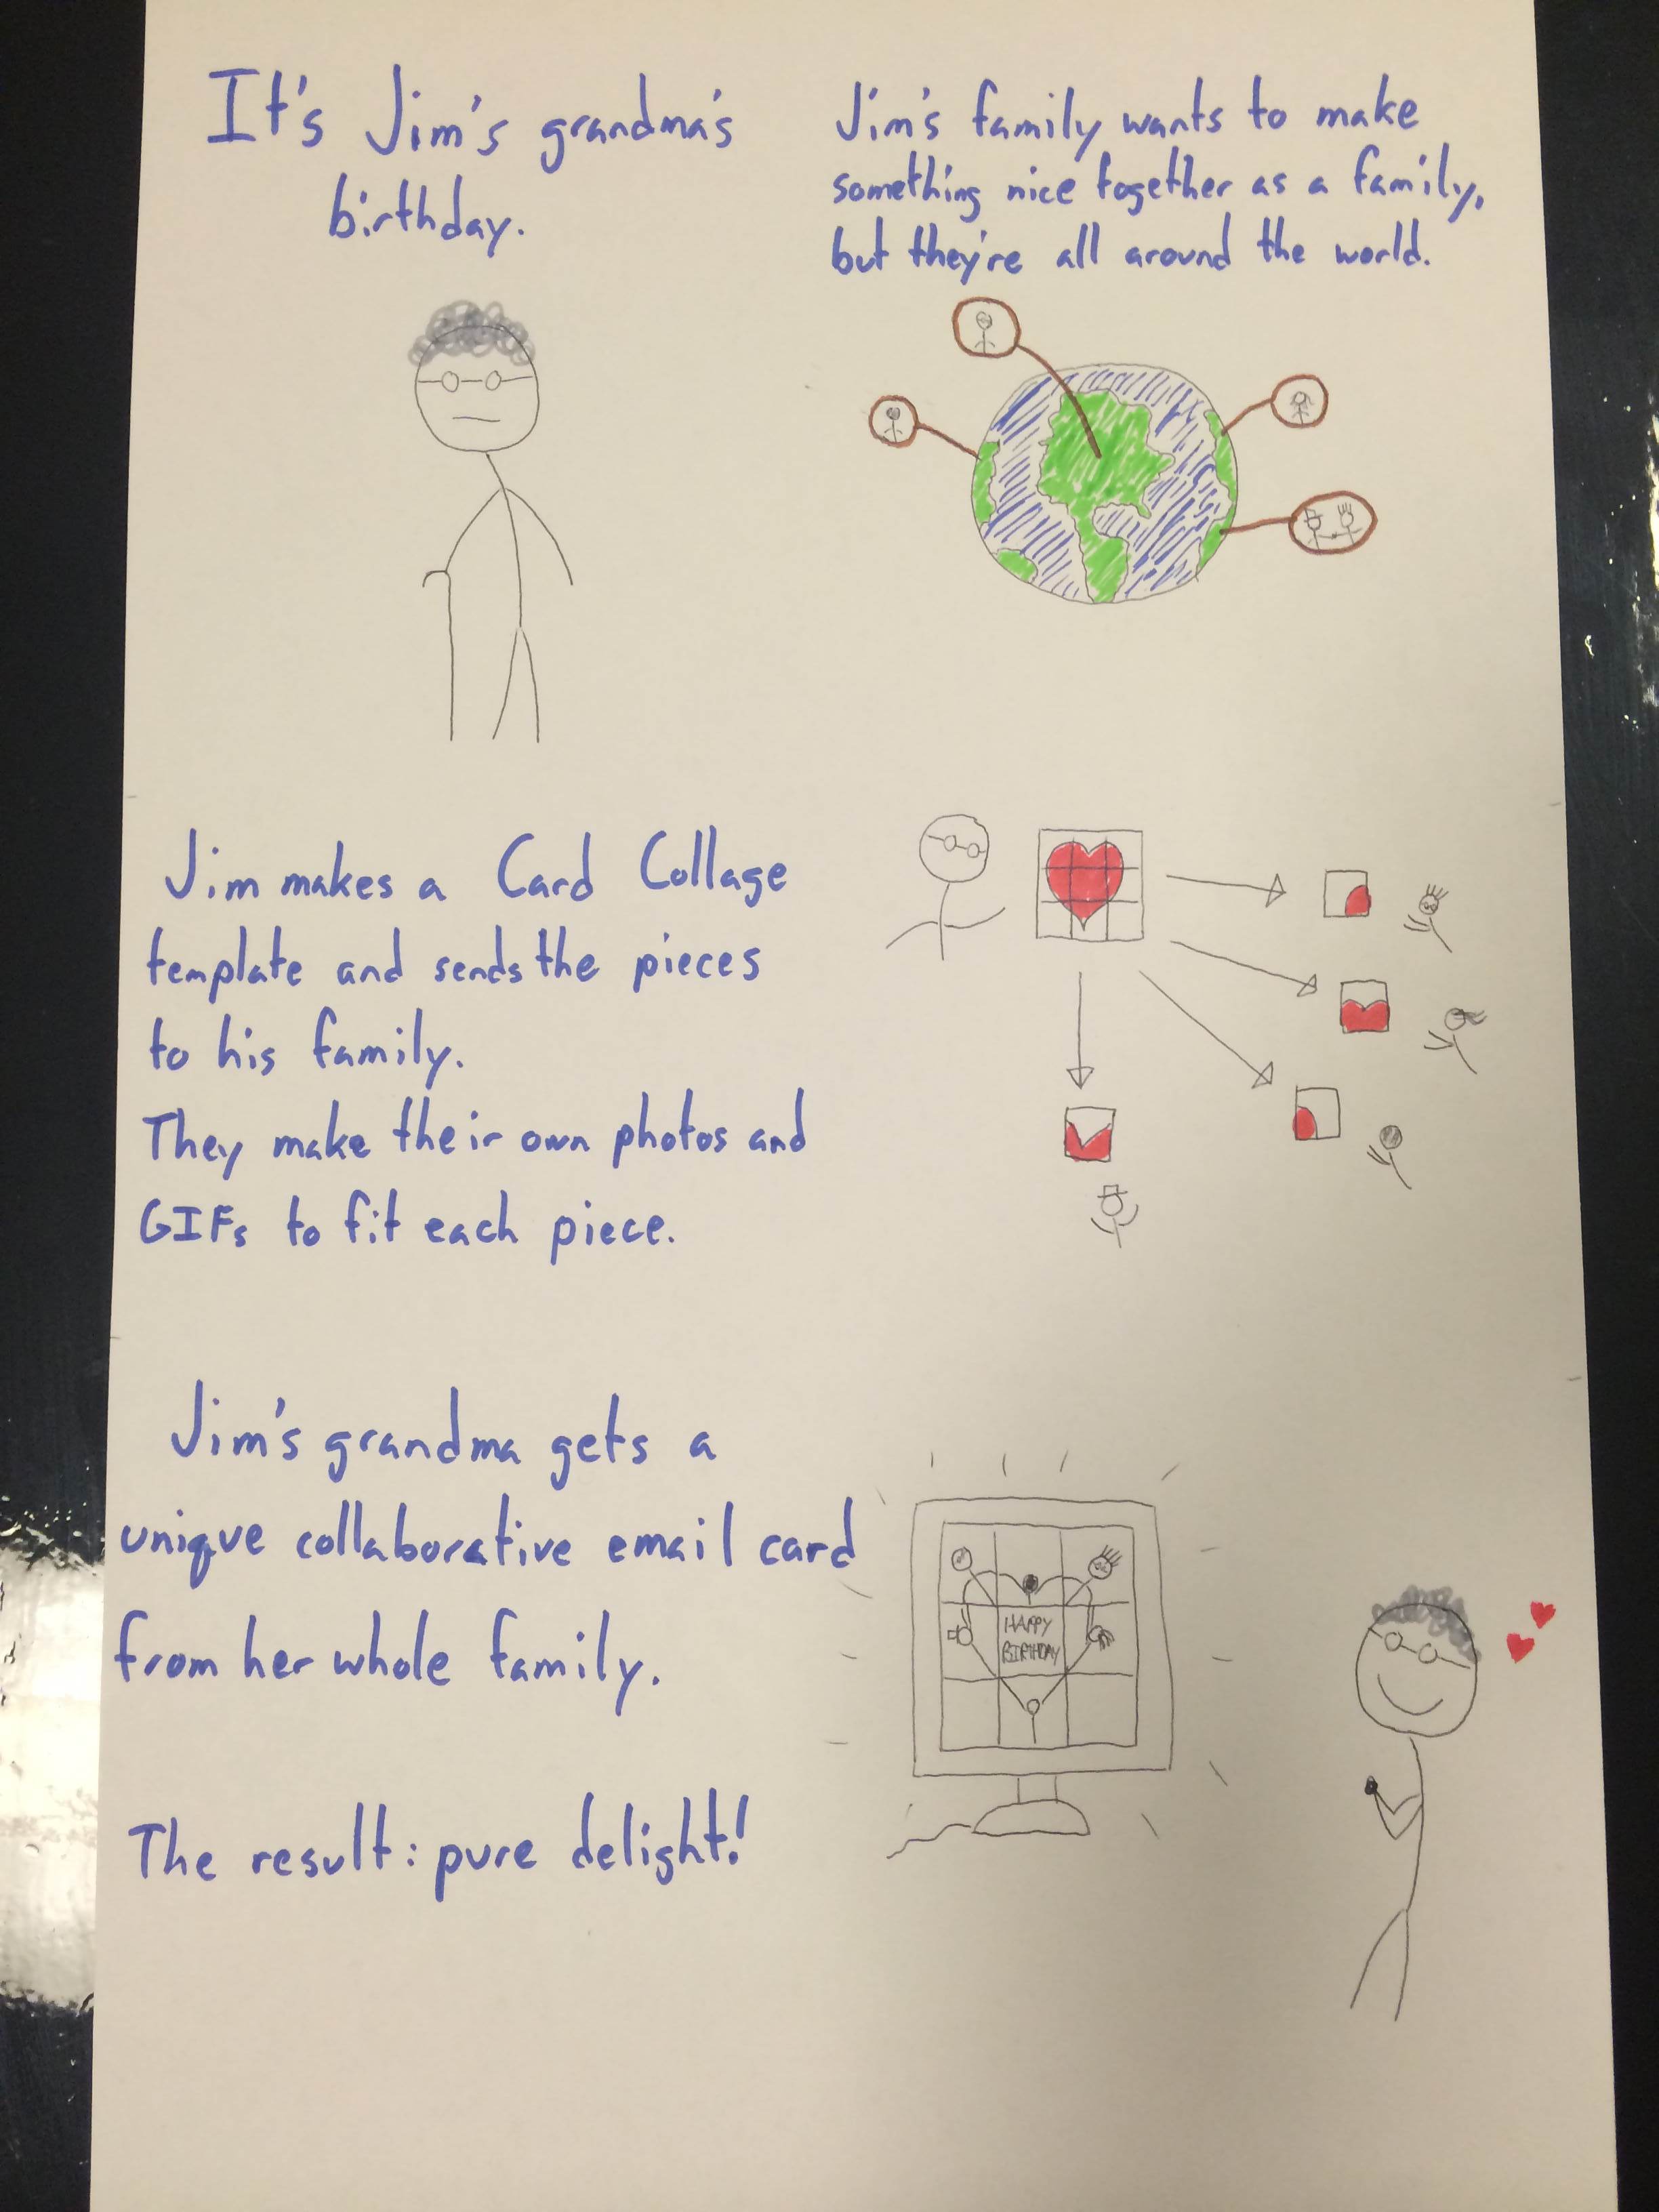 It's Jim's grandma's
birthday.
Jim's family wants to make
something nice together as a family,
but they're all around the world.
Jim makes a Card Collage
template and sends the pieces
to his family.
They make their own photos and
GIFs to fit each piece.
Jim's grandma gets a
unique collaborative email card
from her whole family.
HAPPY
BIRTHDAY
The result: pure delight!